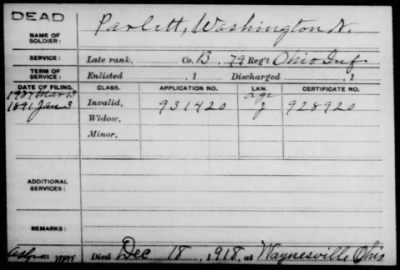 DEAD
NAME OF SOLDIER: Parlett, Washington N.
SERVICE: Late rank, Co. B. 79 Reg't Ohio Inf.
TERM OF SERVICE: Enlisted , 1 Discharged , 1
DATE OF FILING. CLASS. APPLICATION NO. LAW. CERTIFICATE NO.
1907 Mar 13 age
1891 Jan 3 Invalid, 931420 J 928920
Widow,
Minor,
ADDITIONAL SERVICES:
REMARKS:
Died Dec 18, 1918, at Waynesville Ohio